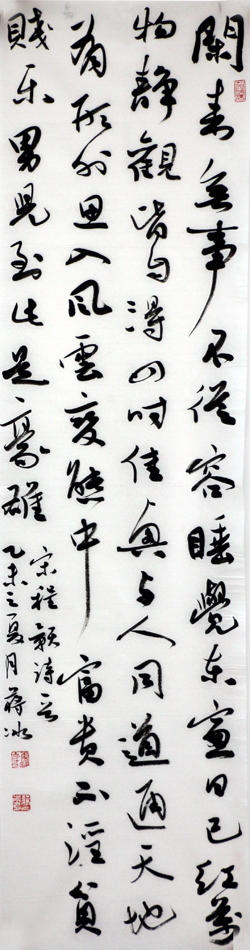 閑来無事不從容睡覺东窗日已红萬
物靜觀皆自得四时佳興与人同道通天地
有形外思入風雲變態中富贵不淫貧
賤乐男兒到此是豪雄
宋程顥詩
乙未之夏月蒋冰